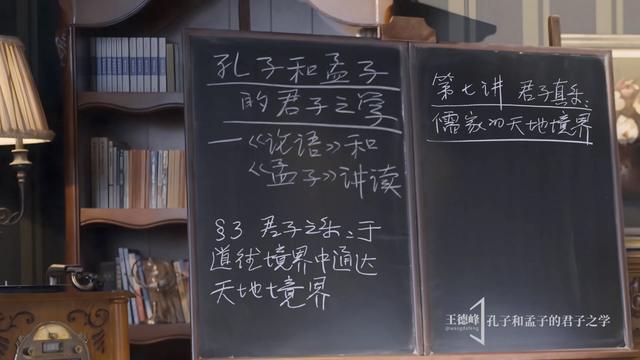 孔子和孟子
的君子之学
—《论语》和
《孟子》讲读
§3 君子之乐:于
道德境界中通达
天地境界
第七讲 君子真乐:
儒家的天地境界
王德峰
@wangdefeng
孔子和孟子的君子之学